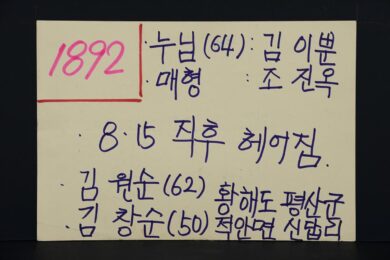 1892
·누님(64): 김 이뿐
·매형 : 조 진옥
8·15 직후 헤어짐.
·김 원순(62) 황해도 평산군
·김 창순(50) 적암면 신답리